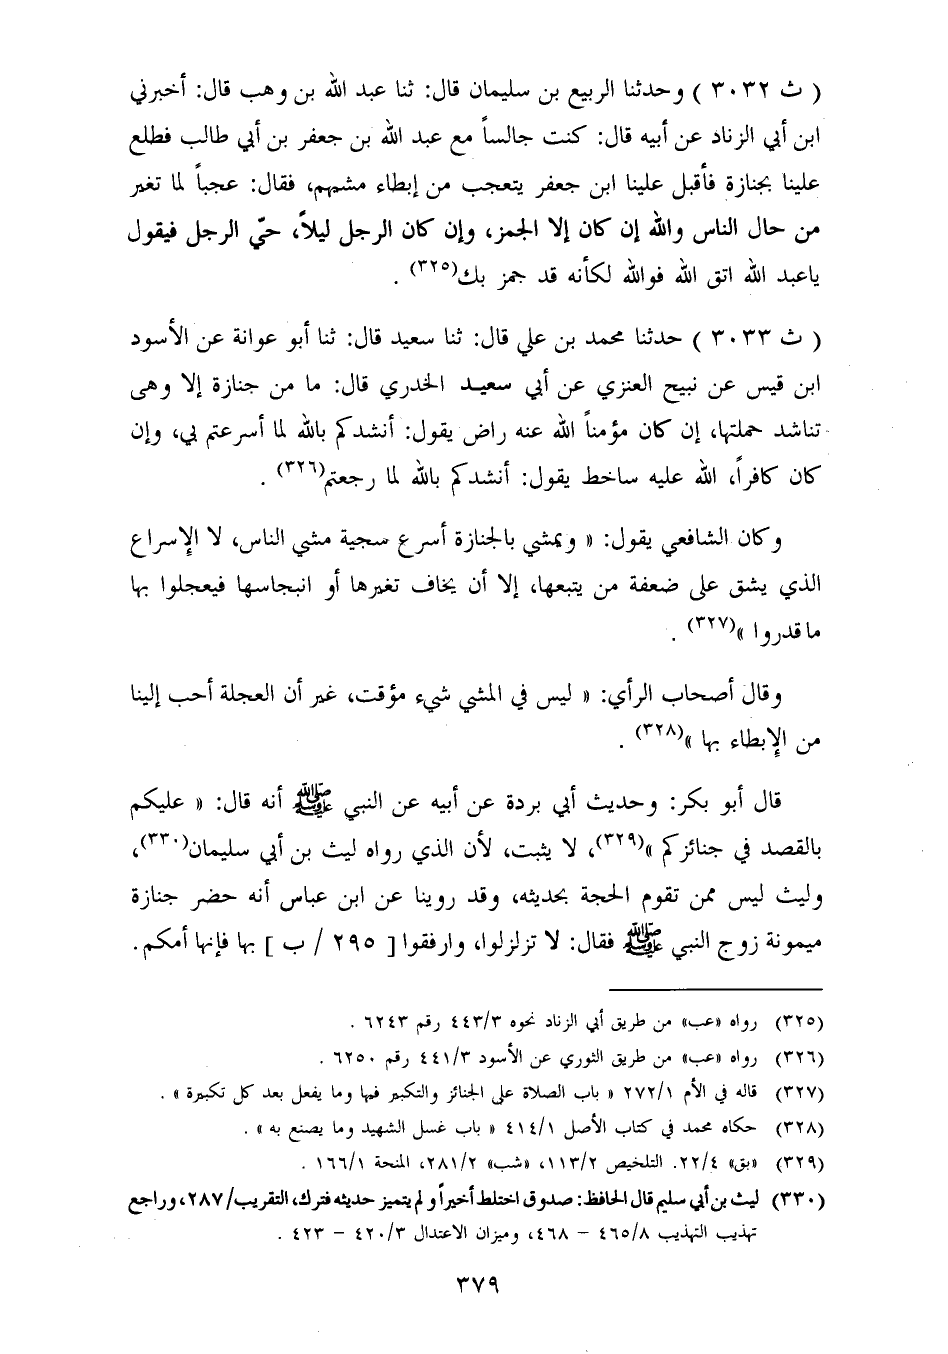 ( ث ٣٠٣٢ ) وحدثنا الربيع بن سليمان قال: ثنا عبد الله بن وهب قال: أخبرني
ابن أبي الزناد عن أبيه قال: كنت جالساً مع عبد الله بن جعفر بن أبي طالب فطلع
علينا بجنازة فأقبل علينا ابن جعفر يتعجب من إبطاء مشيهم، فقال: عجباً لما تغير
من حال الناس والله إن كان إلا الجمز، وإن كان الرجل ليلاً، حيّ الرجل فيقول
ياعبد الله اتق الله فوالله لكأنه قد جمز بك(٣٢٥) .
( ث ٣٠٣٣ ) حدثنا محمد بن علي قال: ثنا سعيد قال: ثنا أبو عوانة عن الأسود
ابن قيس عن نبيح العنزي عن أبي سعيد الخدري قال: ما من جنازة إلا وهى
تناشد حملتها، إن كان مؤمناً الله عنه راض يقول: أنشدكم بالله لما أسرعتم بي، وإن
كان كافراً، الله عليه ساخط يقول: أنشدكم بالله لما رجعتم(٣٢٦) .
وكان الشافعي يقول: « ويمشي بالجنازة أسرع سجية مشي الناس، لا الإسراع
الذي يشق على ضعفة من يتبعها، إلا أن يخاف تغيرها أو انبجاسها فيعجلوا بها
ماقدروا »(٣٢٧) .
وقال أصحاب الرأي: « ليس في المشي شيء مؤقت، غير أن العجلة أحب إلينا
من الإبطاء بها »(٣٢٨) .
قال أبو بكر: وحديث أبي بردة عن أبيه عن النبي ﷺ أنه قال: « عليكم
بالقصد في جنائزكم »(٣٢٩)، لا يثبت، لأن الذي رواه ليث بن أبي سليمان(٣٣٠)،
وليث ليس ممن تقوم الحجة بحديثه، وقد روينا عن ابن عباس أنه حضر جنازة
ميمونة زوج النبي ﷺ فقال: لا تزلزلوا، وارفقوا [ ٢٩٥ / ب ] بها فإنها أمكم.
(٣٢٥) رواه «عب» من طريق أبي الزناد نحوه ٤٤٣/٣ رقم ٦٢٤٣ .
(٣٢٦) رواه «عب» من طريق الثوري عن الأسود ٤٤١/٣ رقم ٦٢٥٠ .
(٣٢٧) قاله في الأم ٢٧٢/١ « باب الصلاة على الجنائز والتكبير فيها وما يفعل بعد كل تكبيرة » .
(٣٢٨) حكاه محمد في كتاب الأصل ٤١٤/١ « باب غسل الشهيد وما يصنع به » .
(٣٢٩) «بق» ٢٢/٤. التلخيص ١١٣/٢، «شب» ٢٨١/٢، المنحة ١٦٦/١ .
(٣٣٠) ليث بن أبي سليم قال الحافظ: صدوق اختلط أخيراً ولم يتميز حديثه فترك، التقريب/٢٨٧، وراجع
تهذيب التهذيب ٤٦٥/٨ – ٤٦٨، وميزان الاعتدال ٤٢٠/٣ – ٤٢٣ .
٣٧٩